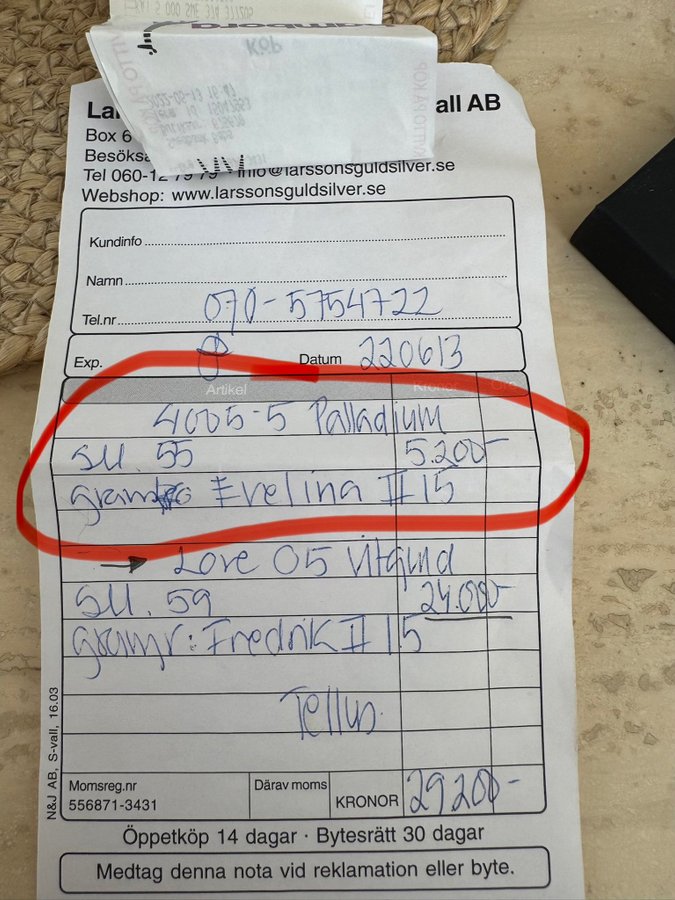 KÖP
all AB
Box 6
Besöks
Tel 060-12 79 79 info@larssonsguldsilver.se
Webshop: www.larssonsguldsilver.se
Kundinfo
Namn
Tel.nr 070-5754722
Exp. Datum 220613
Artikel Kronor Öre
4005-5 Palladium
su. 55 5.200-
Evelina II 15
→ Love 05 Vitguld
su. 59 24.000-
gravyr: Fredrik II 15
Tellus
N&J AB, S-vall, 16.03
Momsreg.nr Därav moms
556871-3431 KRONOR 29200-
Öppetköp 14 dagar · Bytesrätt 30 dagar
Medtag denna nota vid reklamation eller byte.